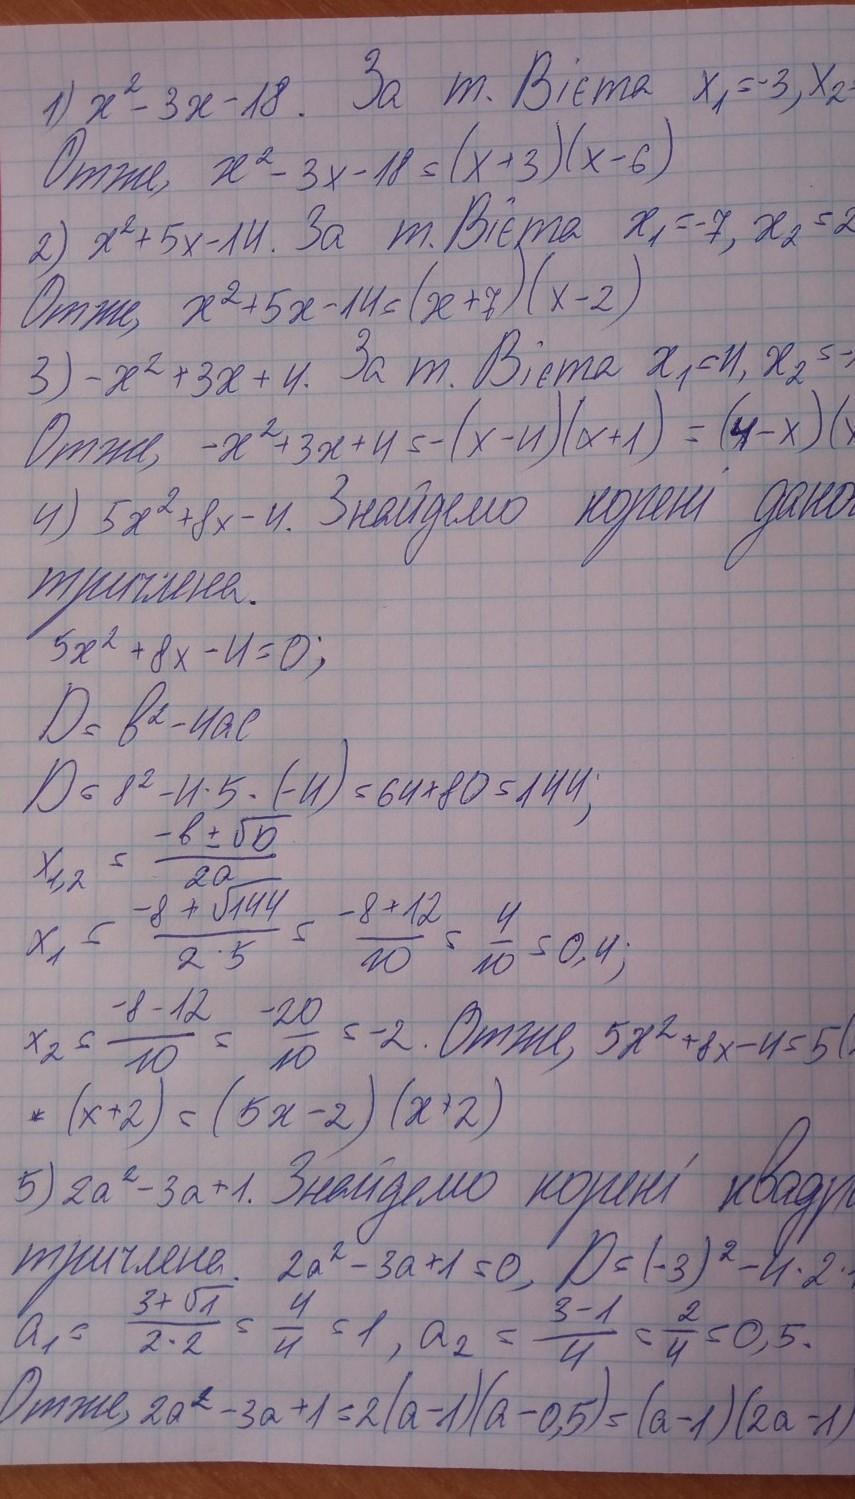 1) x² - 3x - 18. За т. Вієта x₁ = -3, x₂ =
Отже, x² - 3x - 18 = (x + 3)(x - 6)
2) x² + 5x - 14. За т. Вієта x₁ = -7, x₂ = 2
Отже, x² + 5x - 14 = (x + 7)(x - 2)
3) -x² + 3x + 4. За т. Вієта x₁ = 4, x₂ = -
Отже, -x² + 3x + 4 = -(x - 4)(x + 1) = (4 - x)(x
4) 5x² + 8x - 4. Знайдемо корені
тричлена.
5x² + 8x - 4 = 0;
D = b² - 4ac
D = 8² - 4·5·(-4) = 64 + 80 = 144;
x₁,₂ = (-b ± √D)/(2a)
x₁ = (-8 + √144)/(2·5) = (-8 + 12)/10 = 4/10 = 0,4;
x₂ = (-8 - 12)/10 = -20/10 = -2. Отже, 5x² + 8x - 4 = 5(
* (x + 2) = (5x - 2)(x + 2)
5) 2a² - 3a + 1. Знайдемо корені
тричлена. 2a² - 3a + 1 = 0, D = (-3)² - 4·2·
a₁ = (3 + √1)/(2·2) = 4/4 = 1, a₂ = (3 - 1)/4 = 2/4 = 0,5.
Отже, 2a² - 3a + 1 = 2(a - 1)(a - 0,5) = (a - 1)(2a - 1)